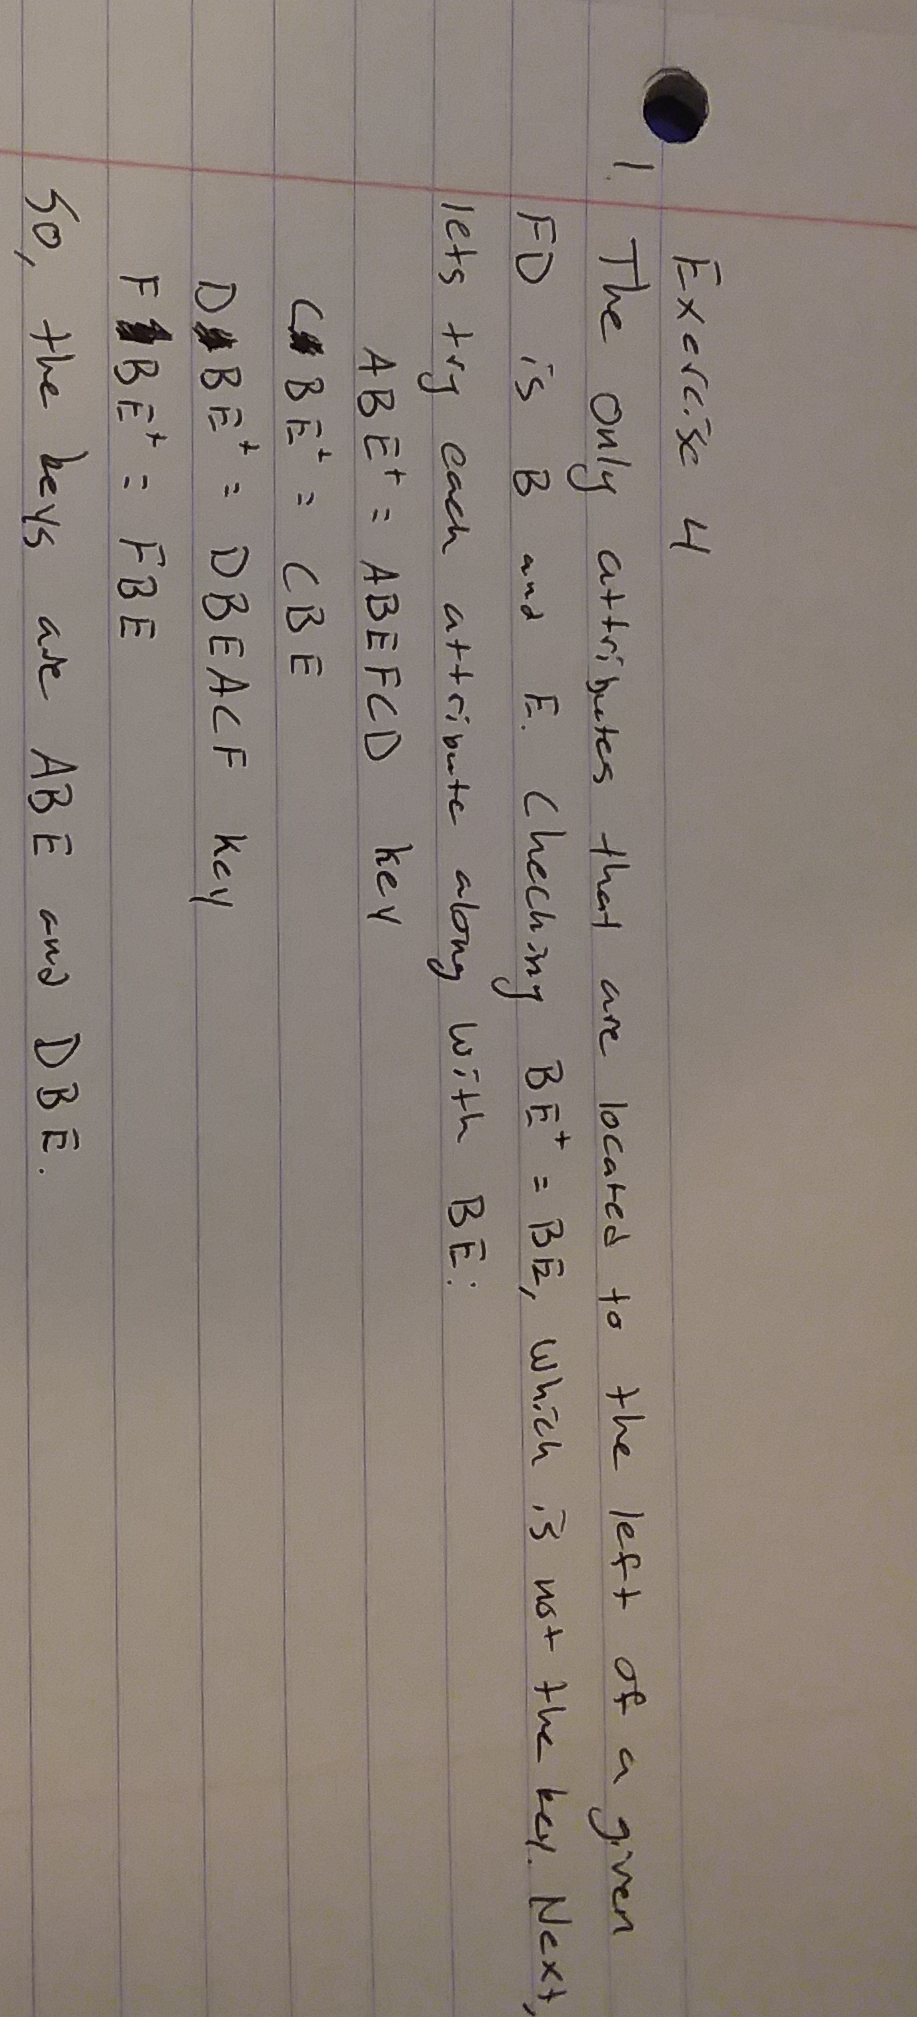 Exercise 4
1. The only attributes that are located to the left of a given
FD is B and E. Checking BE⁺ = BE, which is not the key. Next,
lets try each attribute along with BE:
ABE⁺ = ABEFCD key
CBE⁺ = CBE
DBE⁺ = DBEACF key
FBE⁺ = FBE
So, the keys are ABE and DBE.